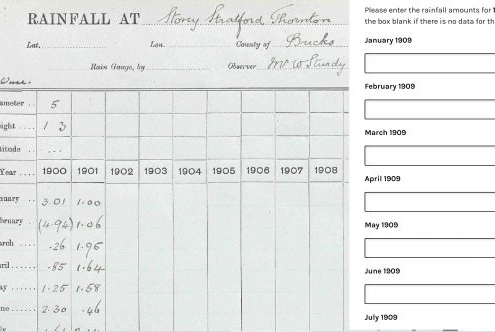 RAINFALL AT Stony Stratford Thornton
Lat. Lon. County of Bucks
Rain Gauge, by Observer Mr W Sturdy
ameter .. 5
ight .... 1 3
titude .. ...
Year .... 1900 1901 1902 1903 1904 1905 1906 1907 1908
nuary .. 3.01 1.00
bruary .. (4.94) 1.06
arch .... .26 1.95
pril ...... .85 1.64
ay ...... 1.25 1.58
ne ...... 2.30 .46
Please enter the rainfall amounts for 1
the box blank if there is no data for th
January 1909
February 1909
March 1909
April 1909
May 1909
June 1909
July 1909